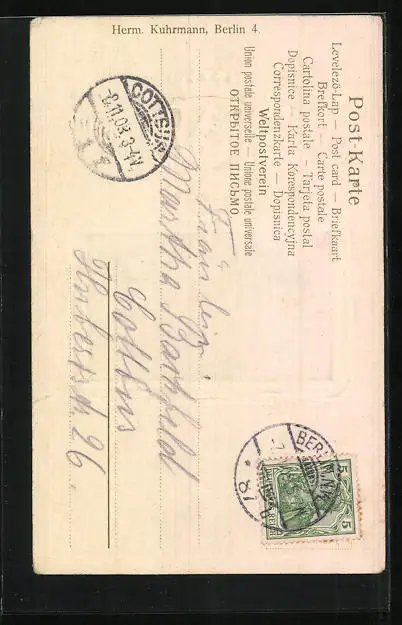 Post-Karte
Levelező-Lap — Post card — Briefkaart
Brefkort — Carte postale
Cartolina postale — Tarjeta postal
Dopisnice — Karta Korespondencyjna
Correspondenzkarte — Dopisnica
Weltpostverein
Union postale universelle — Unione postale universale
ОТКРЫТОЕ ПИСЬМО
Herm. Kuhrmann, Berlin 4.
COTTBUS
11.03. 3-4 N.
BERLIN N.W.
87
5 5
Fräulein
Martha
Cottbus
26.